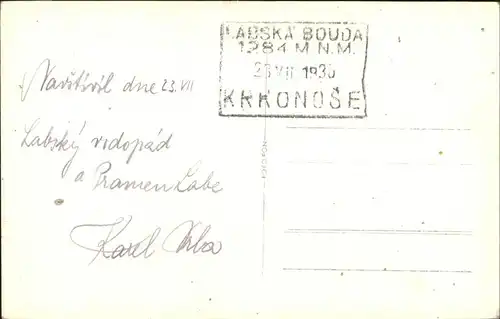 LABSKÁ BOUDA
1284 M N.M.
23 VII 1936
KRKONOŠE
Navštívil dne 23. VII
Labský vodopád
a Pramen Labe
Karel